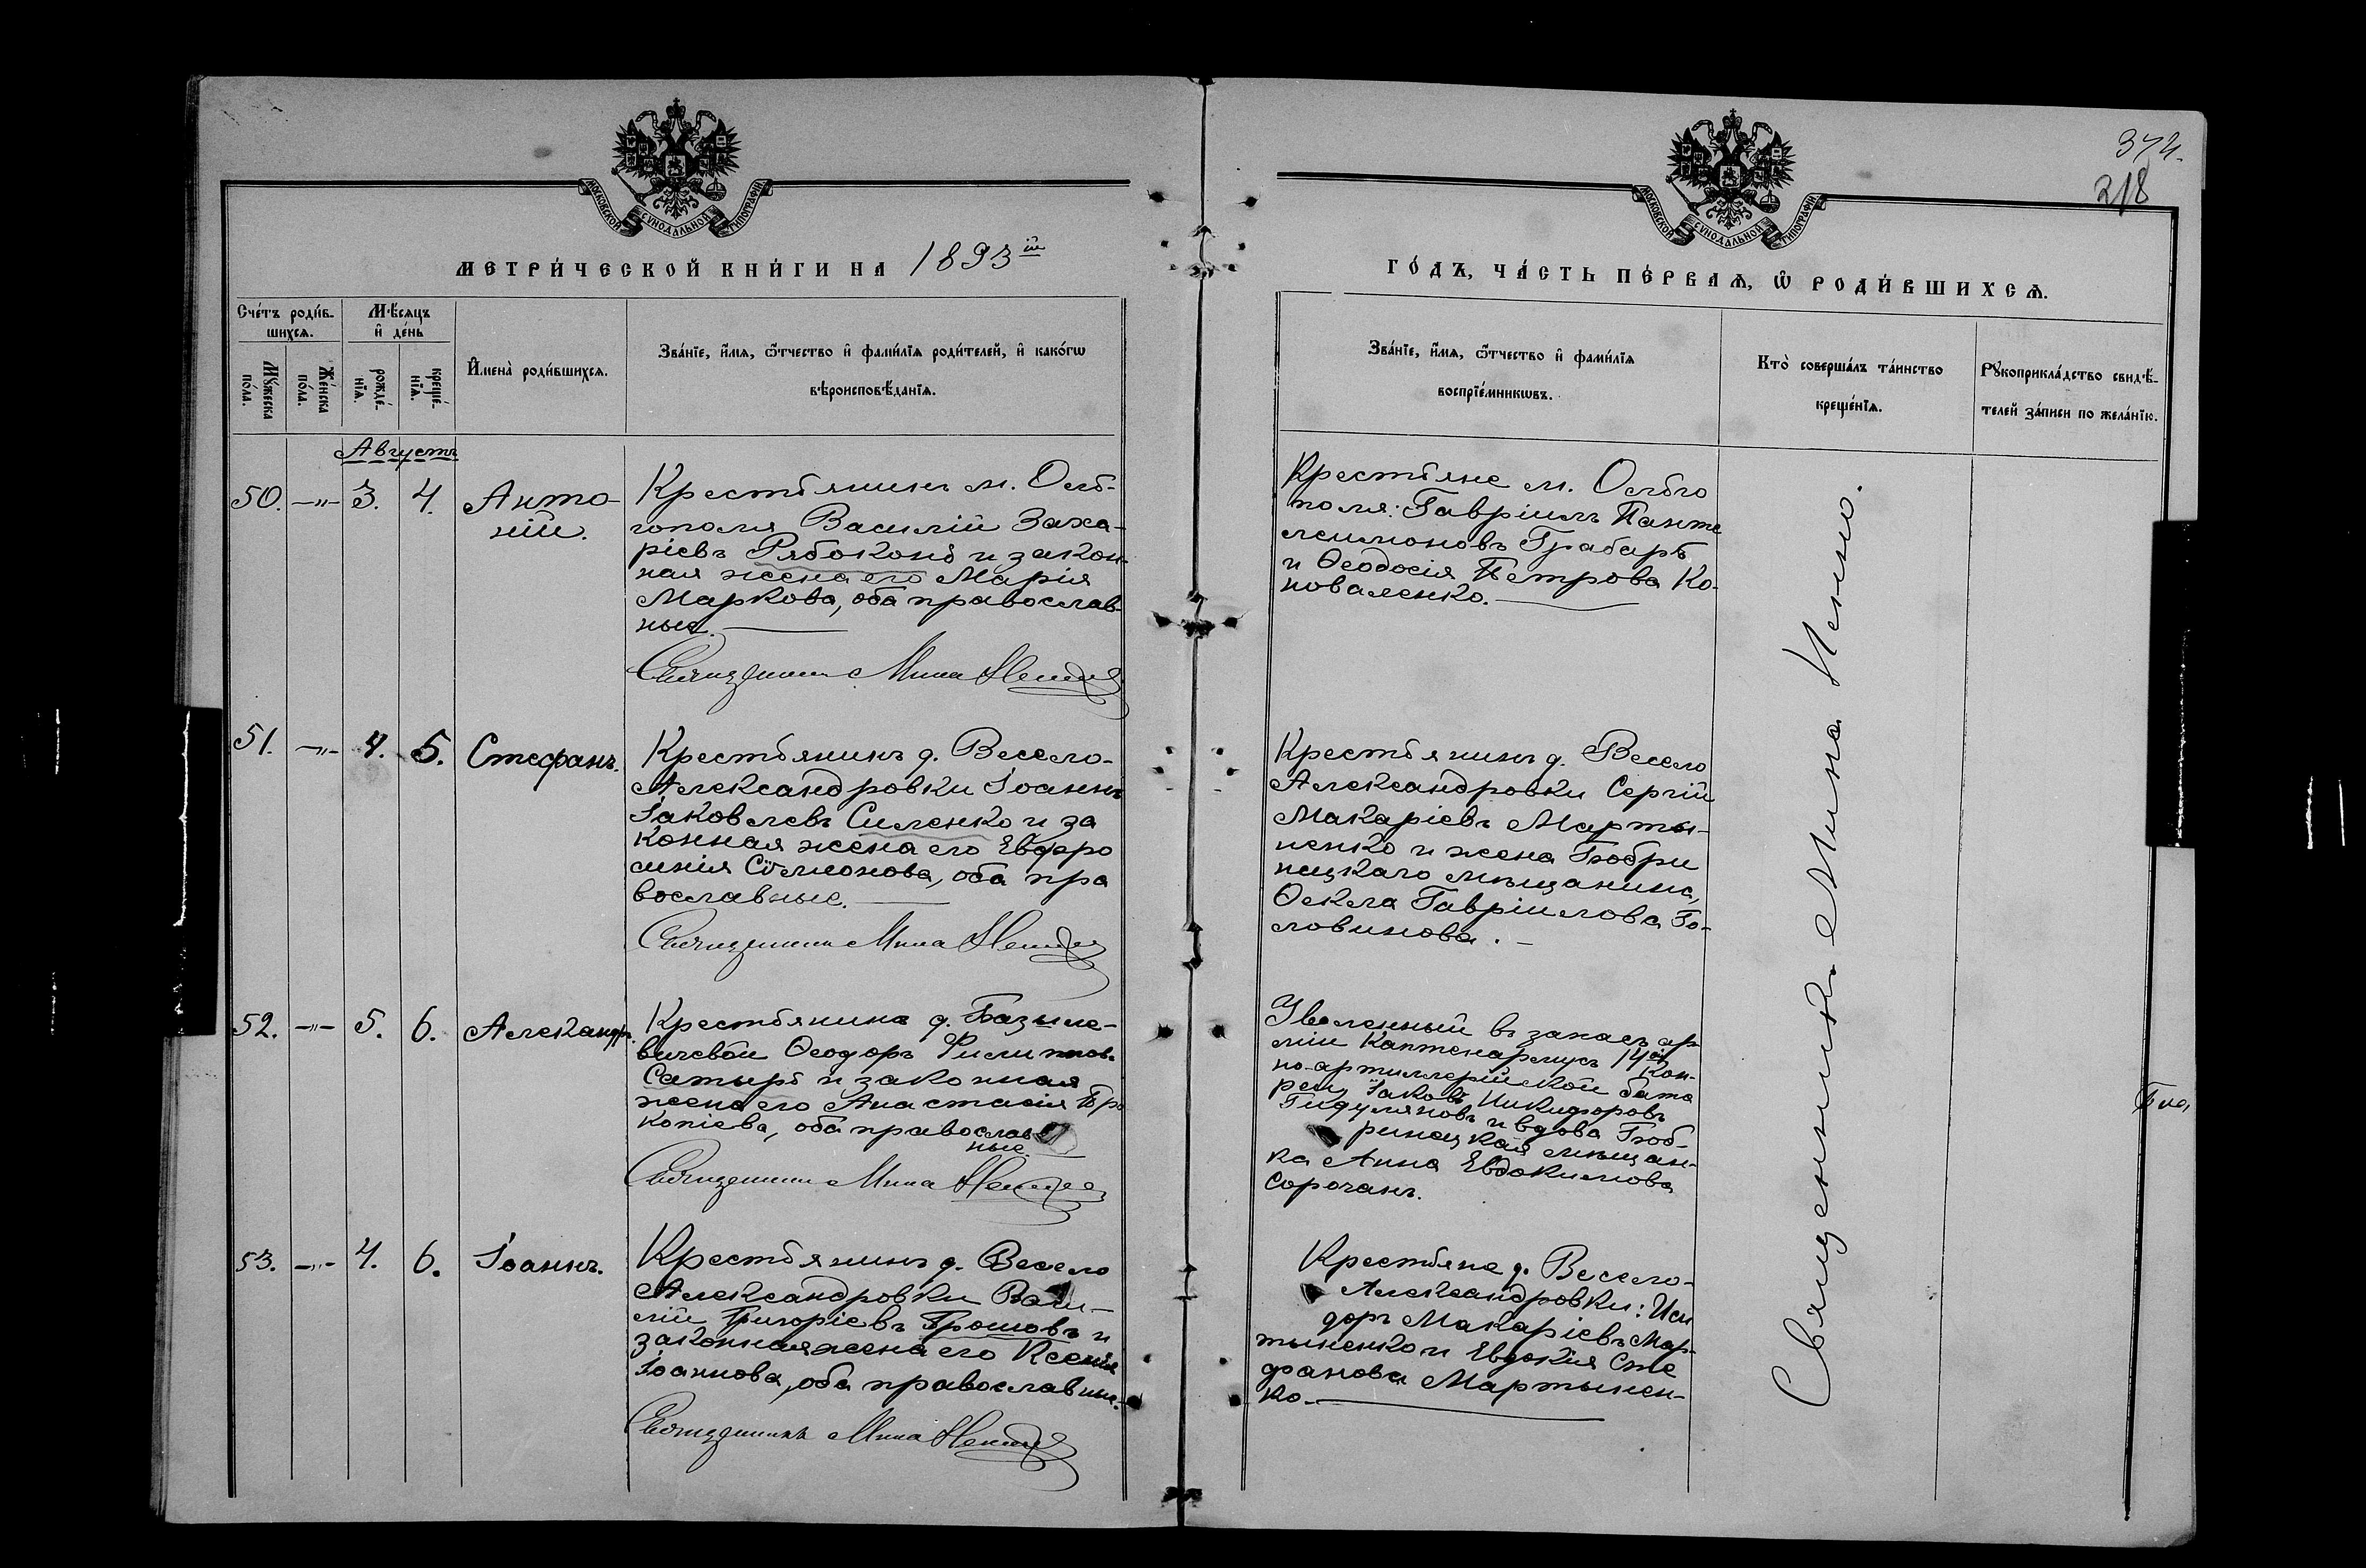 МОСКОВСКОЙ СѴНОДАЛЬНОЙ ТИПОГРАФІИ
МЕТРИ́ЧЕСКОЙ КНИ́ГИ НА 1893 ій
Сче́тъ роди́в-
шихсѧ.
Мꙋ́жеска
по́ла.
Же́нска
по́ла.
Мѣ́сѧцъ
и҆ де́нь
рожде́-
нїѧ.
креще́-
нїѧ.
И҆мена̀ роди́вшихсѧ.
Зва́нїе, и҆́мѧ, ѻ҆́тчество и҆ фами́лїѧ роди́телей, и҆ како́гѡ
вѣроисповѣ́данїѧ.
Августъ
50. —"— 3. 4. Анто-
ній.
Крестьянинъ м. Ольг-
гополя Василій Заха-
ріевъ Рябоконь и закон-
ная жена его Марія
Маркова, оба православ-
ные.
Священникъ Мина
51. —"— 4. 5. Стефанъ.
Крестьянинъ д. Весело-
Александровки Іоаннъ
Іаковлевъ Силенко и за
конная жена его Евфро
синія Сѵмеонова, оба пра
вославные.
Священникъ Мина
52. —"— 5. 6. Александръ.
Крестьянина д. Базиле-
вичевой Ѳеодоръ Филиппов.
Сатыръ и законная
жена его Анастасія Про
копіева, оба православ
ные.
Священникъ Мина
53. —"— 4. 6. Іоаннъ.
Крестьянинъ д. Весело
Александровки Васи-
лій Григоріевъ Грошовъ и
законная жена его Ксенія
Іоаннова, оба православные.
Священникъ Мина
МОСКОВСКОЙ СѴНОДАЛЬНОЙ ТИПОГРАФІИ
374.
218
ГО́ДЪ, ЧА́СТЬ ПЕ́РВАѦ, Ѡ҆ РОДИ́ВШИХСѦ.
Зва́нїе, и҆́мѧ, ѻ҆́тчество и҆ фами́лїѧ
воспрїе́мникѡвъ.
Кто̀ соверша́лъ та́инство
креще́нїѧ.
Рꙋкоприкла́дство свидѣ́-
телей за́писи по жела́нїю.
Крестьяне м. Ольго
поля: Гавріилъ Панте
леимоновъ Грабарь
и Ѳеодосія Петрова Ко-
новаленко.
Крестьянинъ д. Весело
Александровки Сергій
Макаріевъ Марты-
ненко и жена Бобри
нецкаго мѣщанина,
Ѳекла Гавріилова Го-
ловинова.
Уволенный въ запасъ ар-
міи Каптенармусъ 14ой Кон-
но-артиллерійской бата
реи, Іаковъ Никифоровъ
Гидуляновъ и вдова Боб-
ринецкая мѣщан-
ка Анна Евдокимова
Сорочанъ.
Крестьяне д. Весело-
Александровки: Иси
доръ Макаріевъ Мар-
тыненко и Евдокія Сте
фанова Мартынен-
ко.
Священникъ Мина